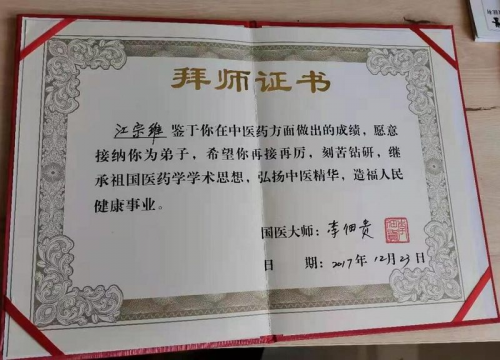 拜师证书
江宗维 鉴于你在中医药方面做出的成绩，愿意
接纳你为弟子，希望你再接再厉，刻苦钻研，继
承祖国医药学学术思想，弘扬中医精华，造福人民
健康事业。
国医大师：李佃贵
日 期：2017年12月23日